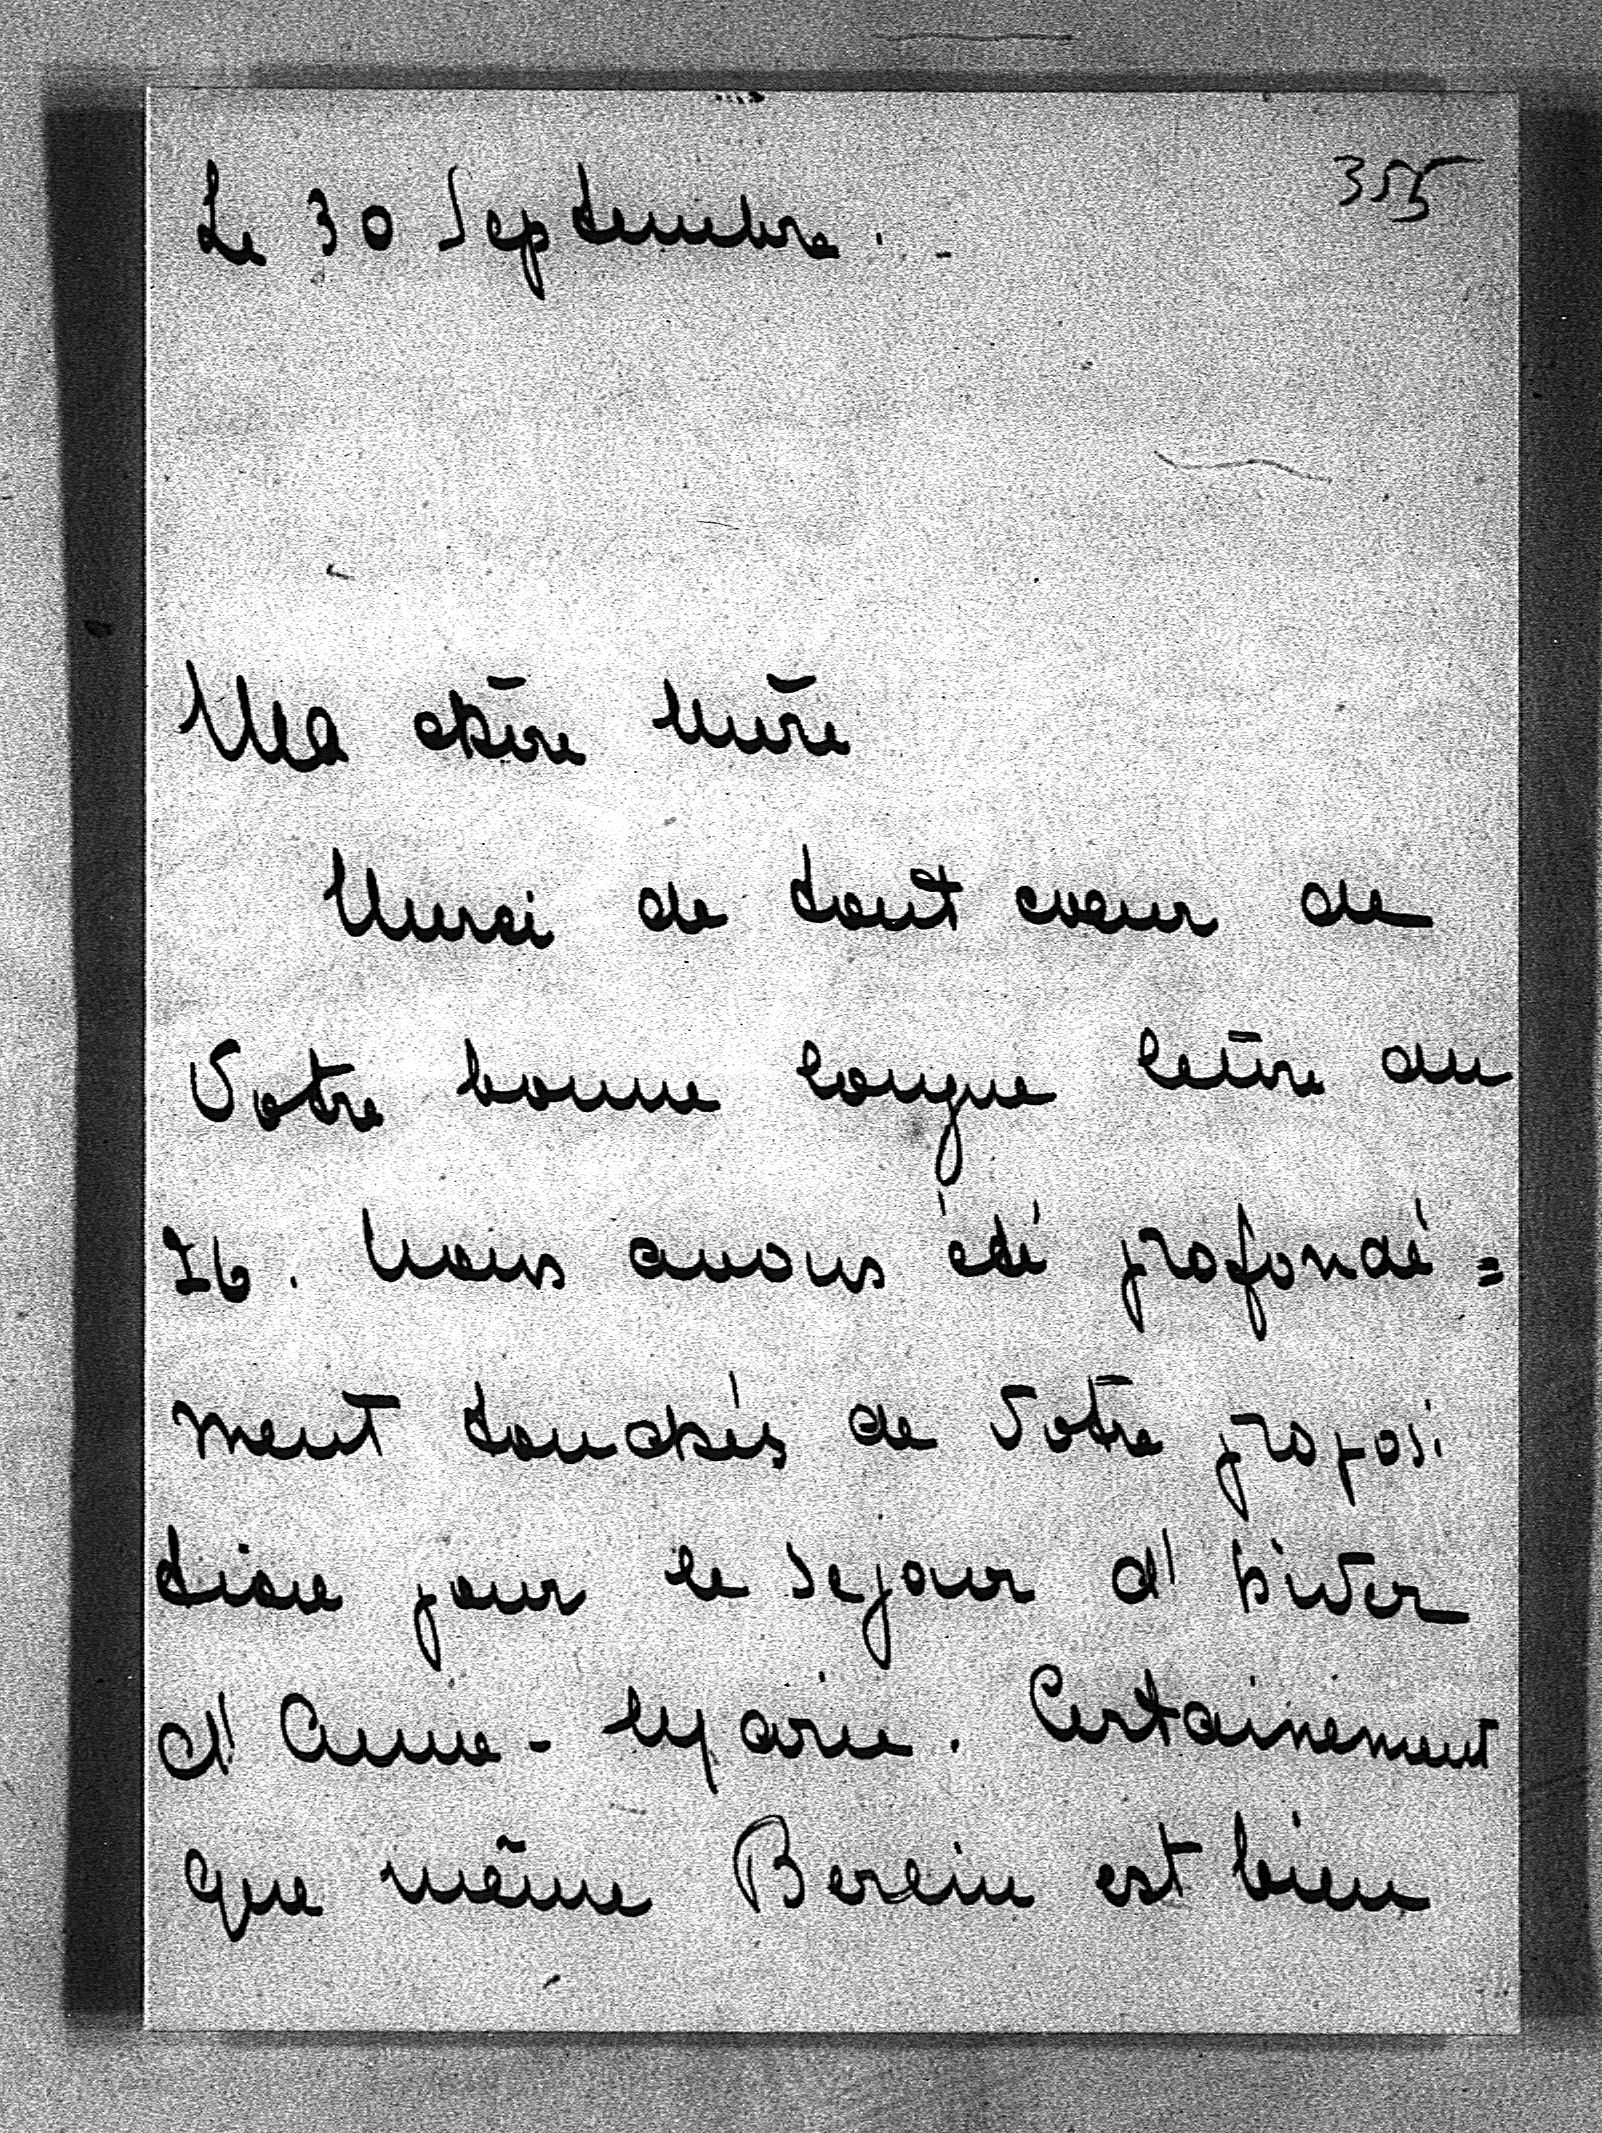 355
Le 30 Septembre. -
Ma chère Mère
Merci de tout coeur de
Votre bonne longue lettre du
26. Nous avons été profondé=
ment touchés de Votre proposi
tion pour le sejour d'hiver
d'Anne-Marie. Certainement
que même Berlin est bien